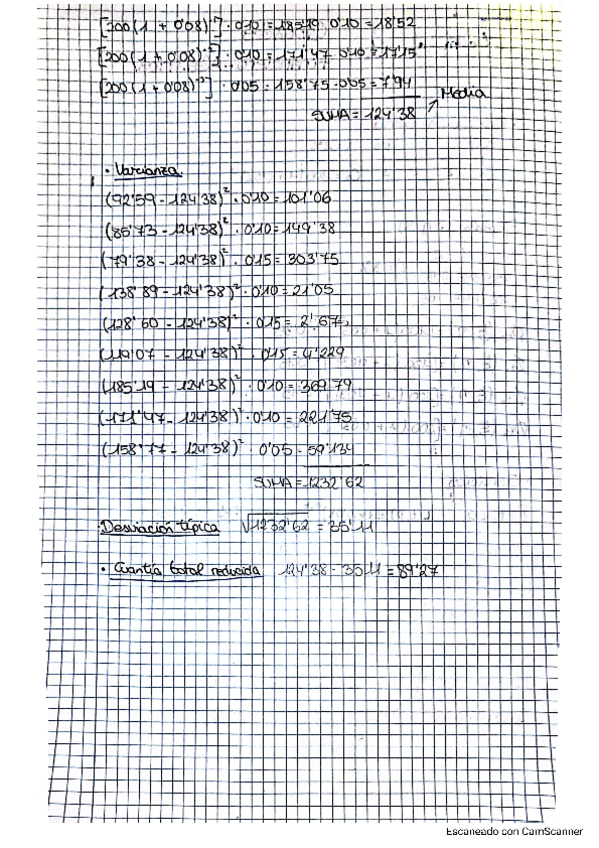 [200(1 + 0'08)⁻¹] · 0'10 = 185'19 · 0'10 = 18'52
[200(1 + 0'08)⁻²] · 0'10 = 171'47 · 0'10 = 17'15
[200(1 + 0'08)⁻³] · 0'05 = 158'75 · 0'05 = 7'94
SUMA = 124'38 ↗ Media
· Varianza.
(92'59 - 124'38)² · 0'10 = 101'06
(85'73 - 124'38)² · 0'10 = 149'38
(79'38 - 124'38)² · 0'15 = 303'75
(138'89 - 124'38)² · 0'10 = 21'05
(128'60 - 124'38)² · 0'15 = 2'67
(119'07 - 124'38)² · 0'15 = 4'229
(185'19 - 124'38)² · 0'10 = 369'79
(171'47 - 124'38)² · 0'10 = 221'75
(158'77 - 124'38)² · 0'05 = 59'134
SUMA = 1232'62
· Desviación típica √1232'62 = 35'11
· Cuantía total reducida 124'38 - 35'11 = 89'27
Escaneado con CamScanner